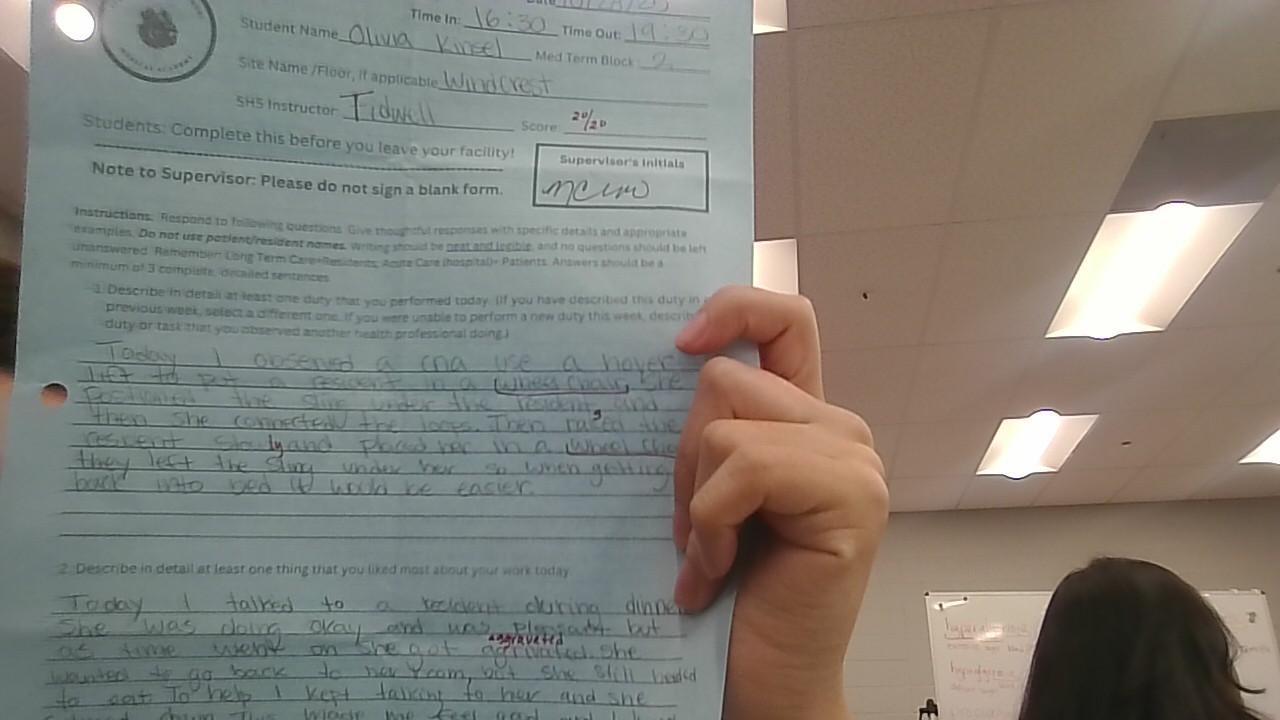 Time In: 16:30 Time Out: 19:30
Student Name Olivia Kinsel Med Term Block: 2
Site Name /Floor, if applicable Windcrest
SHS Instructor: Tidwell Score: 20/20
Students: Complete this before you leave your facility!
Supervisor's Initials
Note to Supervisor: Please do not sign a blank form.
Instructions: Respond to following questions. Give thoughtful responses with specific details and appropriate
examples. Do not use patient/resident names. Writing should be neat and legible, and no questions should be left
unanswered. Remember: Long Term Care=Residents, Acute Care (hospital)= Patients. Answers should be a
minimum of 3 complete, detailed sentences
1. Describe in detail at least one duty that you performed today. (If you have described this duty in a
previous week, select a different one. If you were unable to perform a new duty this week, describe
duty or task that you observed another health professional doing.)
Today I observed a cna use a hoyer
lift to put a resident in a wheel chair, she
positioned the sling under the resident, and
then she connected the loops. Then raised the
resident slowly and placed her in a wheel
they left the sling under her so when getting
back into bed it would be easier.
2. Describe in detail at least one thing that you liked most about your work today.
Today I talked to a resident during dinner
She was doing okay and was pleasant but
aggravated
as time went on she got agrivated. She
wanted to go back to her room, but she still needed
to eat. To help I kept talking to her and she
down. This made me feel good and I